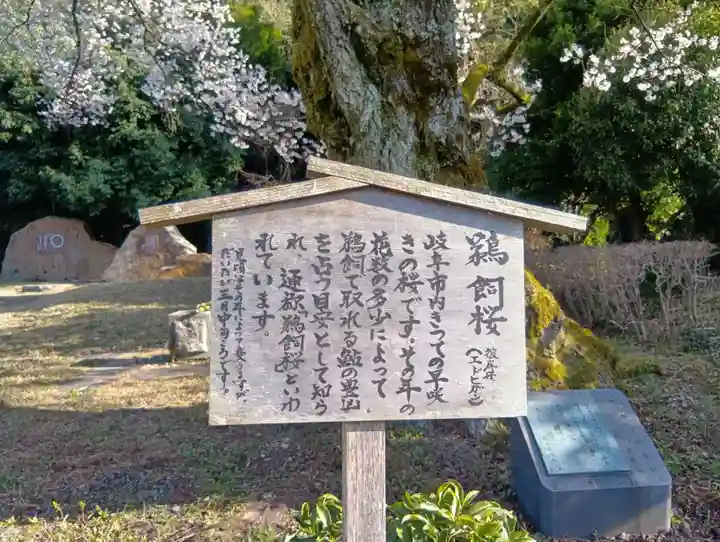 鵜飼桜
彼岸桜
(エドヒガン)
岐阜市内きっての早咲
きの桜です。その年の
花数の多少によって
鵜飼で取れる鮎の豊凶
を占う目安として知ら
れ、通称「鵜飼桜」といわ
れています。
だいたい三月中旬ごろです。